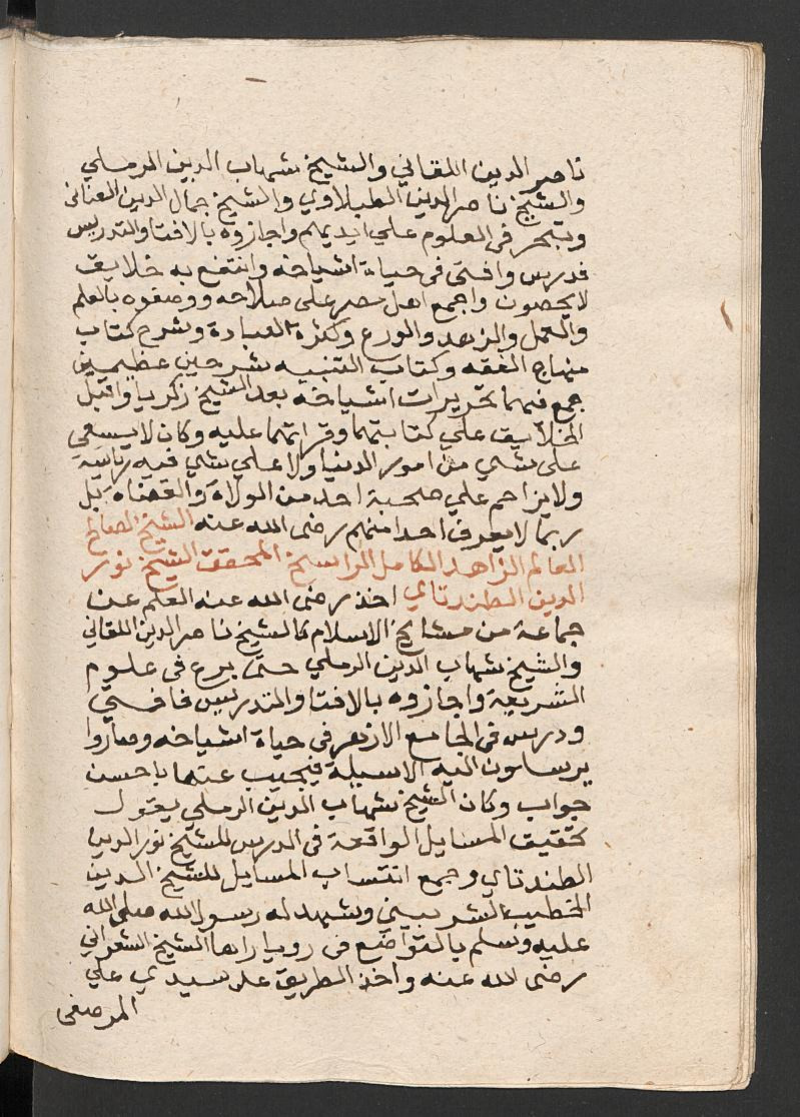 ناصر الدين اللقاني والشيخ شهاب الدين الرملي
والشيخ ناصر الدين الطبلاوي والشيخ جمال الدين الصناني
وتبحر في العلوم علي ايديهم واجازوه بالافتا والتدريس
فدرس وافتي في حياة اشياخه وانتفع به خلايق
لا يحصون واجمع اهل مصر على صلاحه ووصفوه بالعلم
والعمل والزهد والورع وكثرة العبادة وشرح كتاب
منهاج الفقه وكتاب التنبيه شرحين عظيمين
جمع فيهما تحريرات اشياخه بعد الشيخ زكريا واقبل
الخلايق علي كتابتهما وقراتهما عليه وكان لا يسعي
على شي من امور الدنيا ولا علي شي فيه رياسة
ولا يزاحم علي صحبة احد من الولاة والقضاة بل
ربما لا يعرف احدا منهم رضى الله عنه الشيخ الصالح
العالم الزاهد الكامل الراسخ المحقق الشيخ نور
الدين الطندتاي اخذ رضى الله عنه العلم عن
جماعة من مشايخ الاسلام كالشيخ ناصر الدين اللقاني
والشيخ شهاب الدين الرملي حتى برع في علوم
الشريعة واجازوه بالافتا والتدريس فافتي
ودرس في الجامع الازهر في حياة اشياخه وصاروا
يرسلون اليه الاسيلة فيجيب عنها باحسن
جواب وكان الشيخ شهاب الدين الرملي يقول
تحقيق المسايل الواقعة في الدرس للشيخ نور الدين
الطندتاي وجمع اتتساب المسايل للشيخ الدين
الخطيب الشربيني وشهد له رسول الله صلى الله
عليه وسلم بالتواضع في رويا راها الشيخ الشعراني
رضى الله عنه واخذ الطريق على سيدي علي
المرصفى